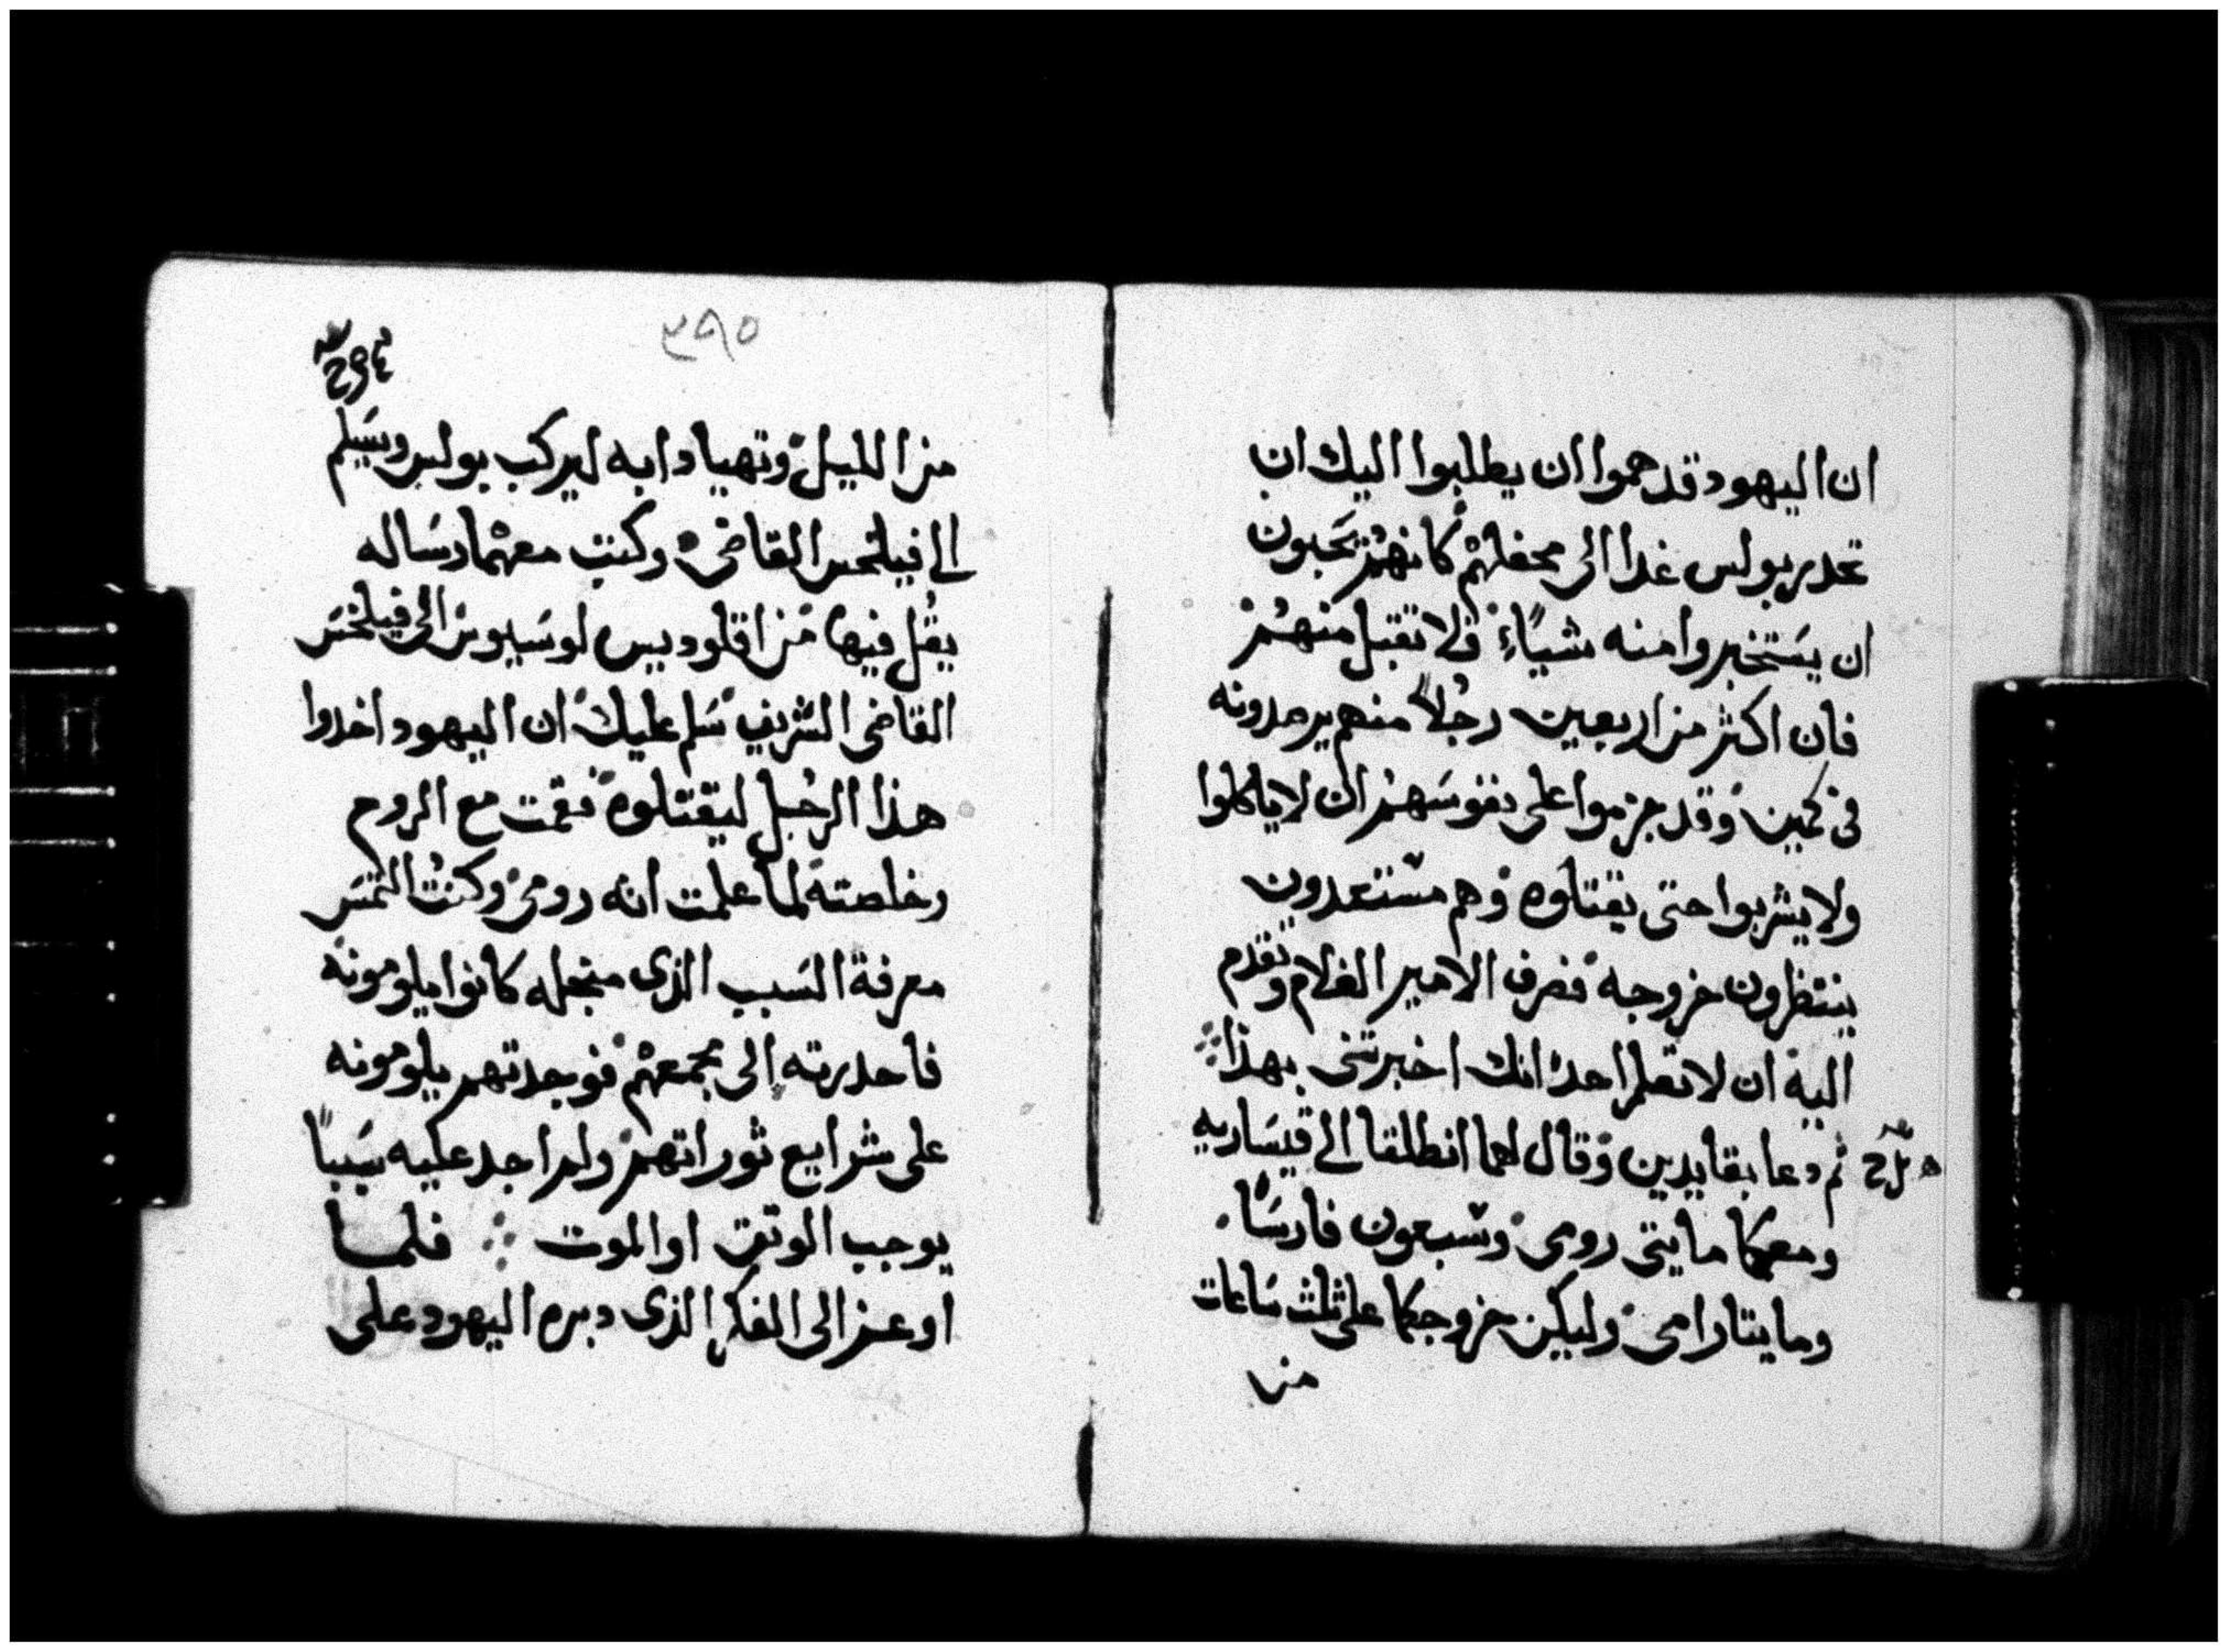 ان اليهود قد هموا ان يطلبوا اليك ان
تحدر بولس غدا الى محفلهم كانهم يحبون
ان يستخبروا منه شياً فلا تقبل منهم
فان اكثر من اربعين رجلاً منهم يرصدونه
في كمين وقد جزموا على نفوسهم ان لا ياكلوا
ولا يشربوا حتى يقتلوه وهم مستعدون
ينتظرون خروجه فصرف الامير الغلام وتقدم
اليه ان لا تعلم احدا انك اخبرتني بهذا
ثم دعا بقايدين وقال لهما انطلقا الى قيساريه
ومعكما مايتي رومي وسبعون فارسًا
ومايتا رامي وليكن خروجكما على ثلث ساعات
من
٣٩٥
من الليل وتهيا دابه ليركب بولس ويسلم
الى فيلخس القاضي وكتب معهما رساله
يقل فيها من اقلوديس لوسيوس الى فيلخس
القاضي الشريف سلم عليك ان اليهود اخدوا
هذا الرجل ليقتلوه فقمت مع الروم
وخلصته لما علمت انه رومي وكنت التمس
معرفة السبب الذي منجله كانوا يلومونه
فاحدرته الى مجمعهم فوجدتهم يلومونه
على شرايع توراتهم ولم اجد عليه سببًا
يوجب الوتق او الموت فلما
اوعز الى الفكر الذي دبره اليهود على